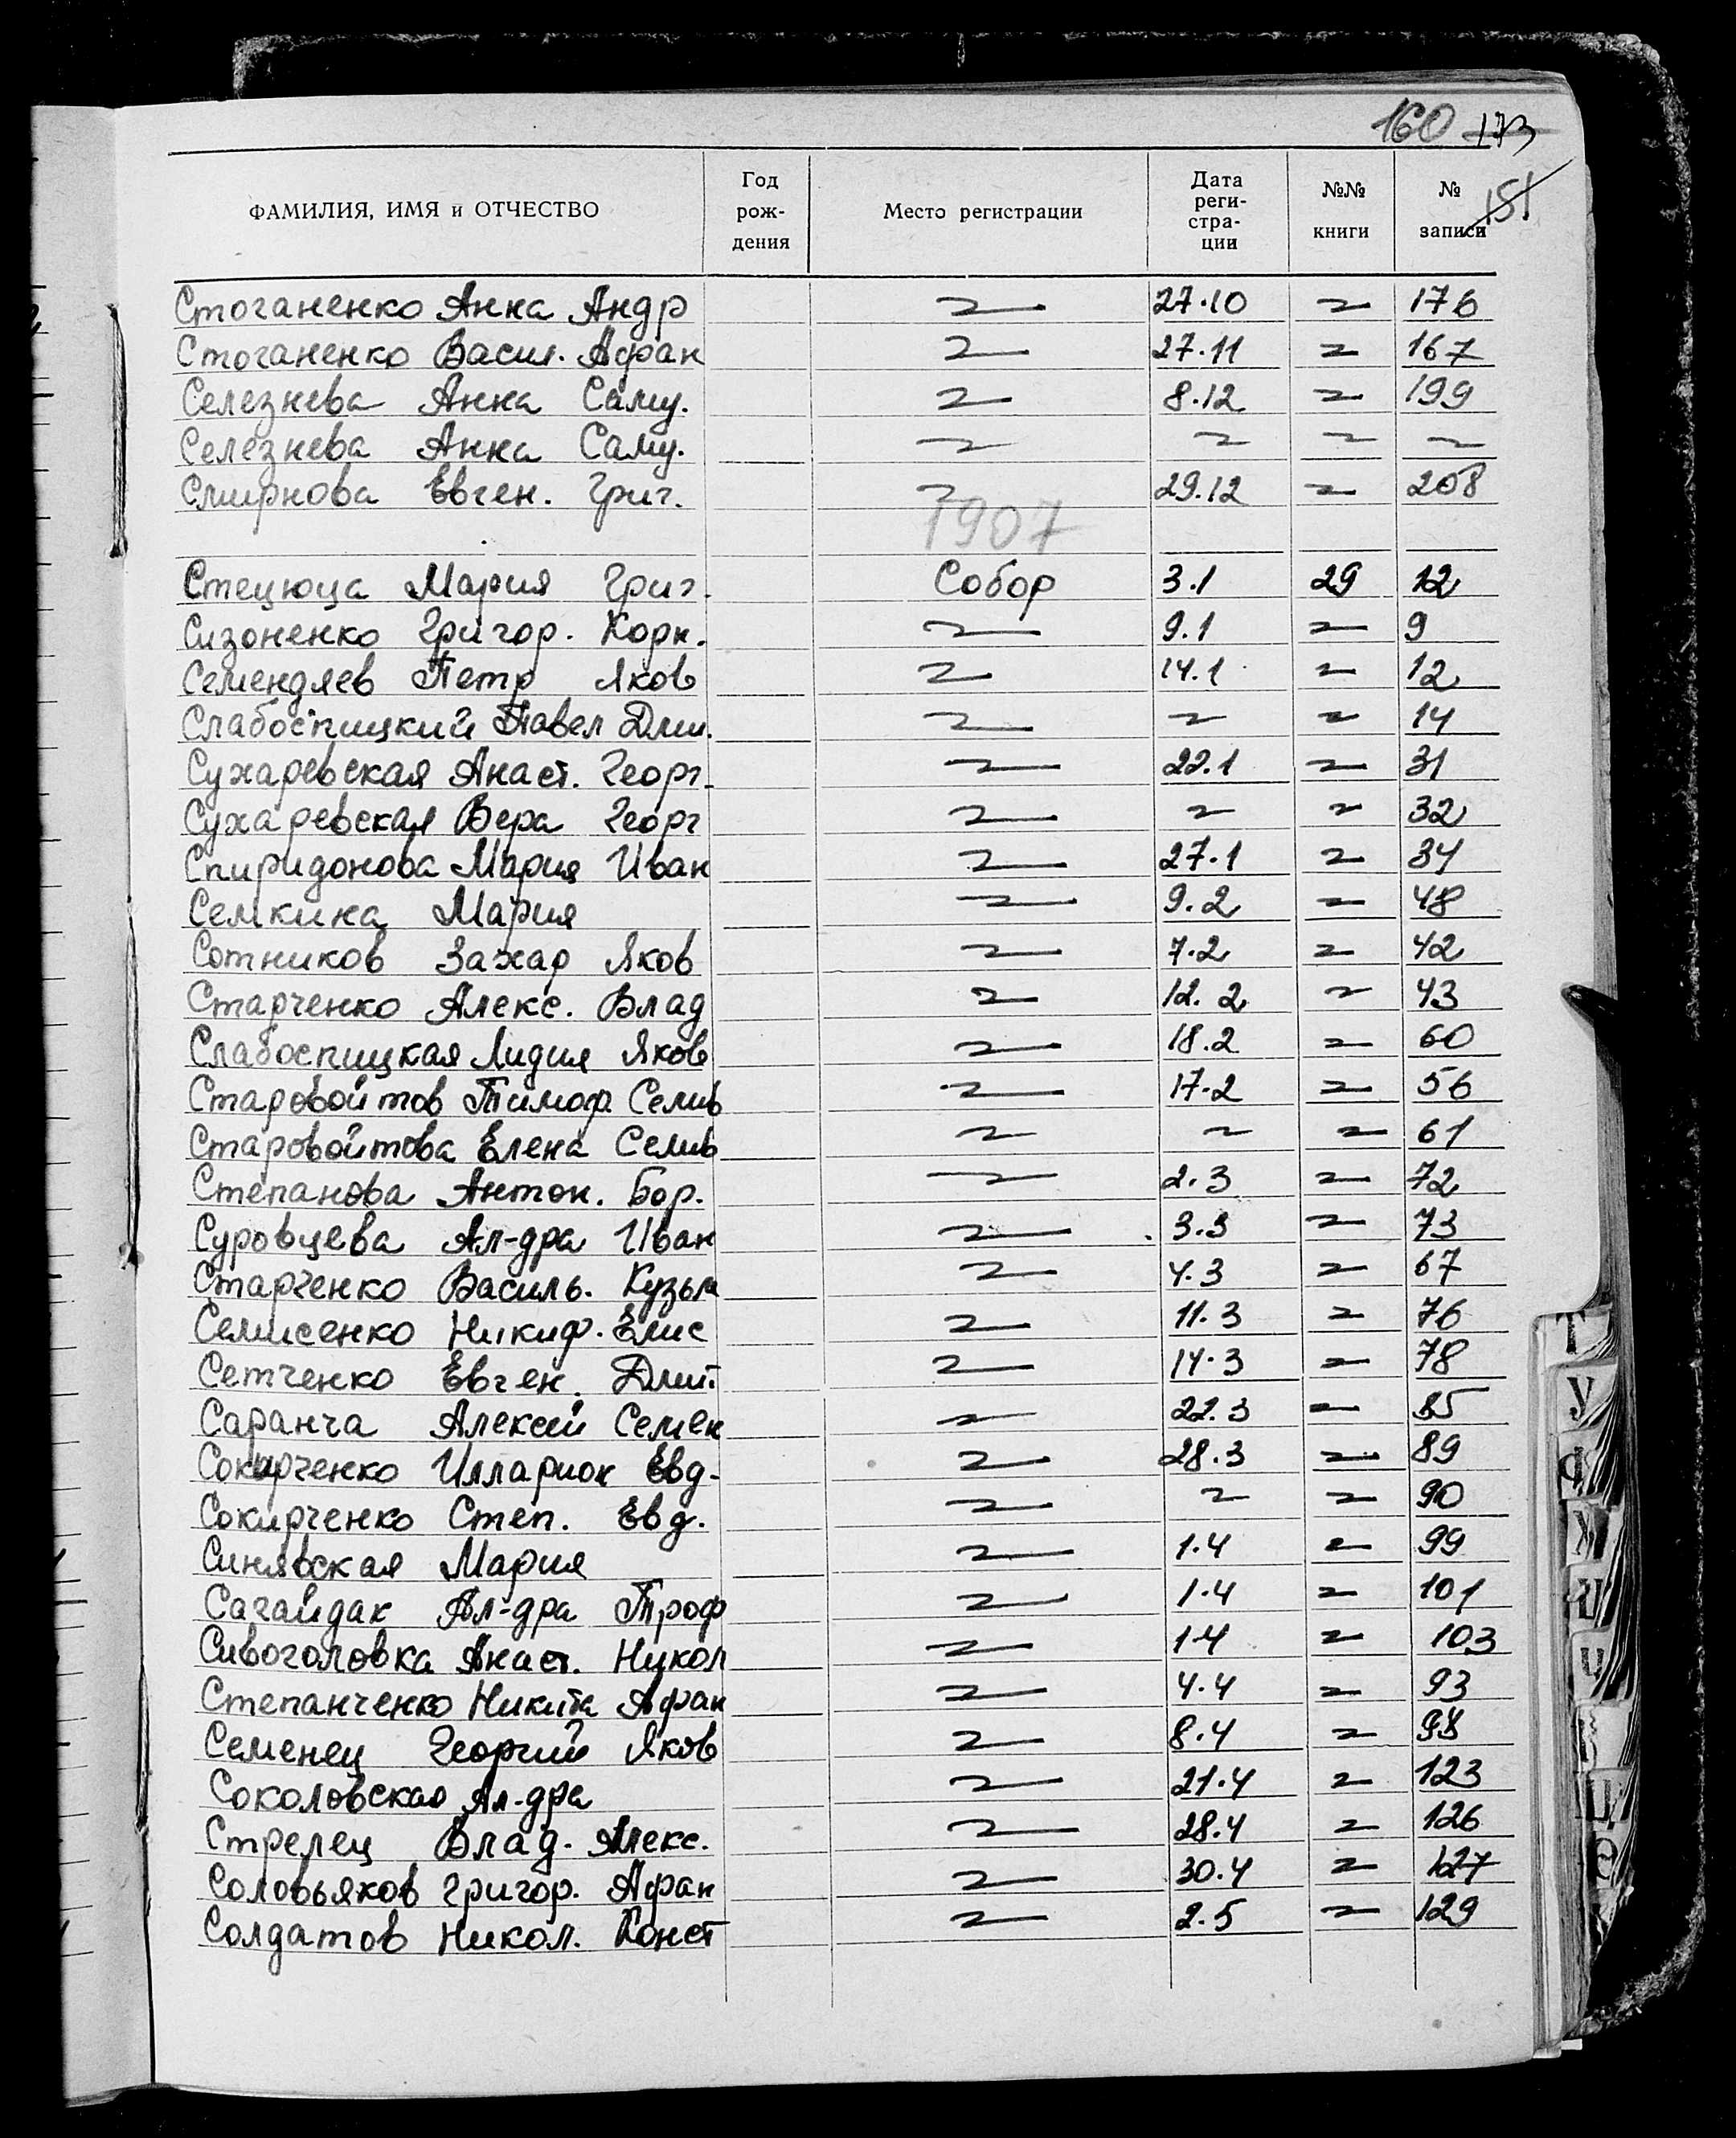 160 173
151
ФАМИЛИЯ, ИМЯ и ОТЧЕСТВО Год рож- дения Место регистрации Дата реги- стра- ции №№ книги № записи
Стоганенко Анна Андр 〃 27.10 〃 176
Стоганенко Васил. Афан 〃 27.11 〃 167
Селезнева Анна Саму. 〃 8.12 〃 199
Селезнева Анна Саму. 〃 〃 〃 〃
Смирнова Евген. Григ. 〃 29.12 〃 208
1907
Стецюца Мария Григ. Собор 3.1 29 12
Сизоненко Григор. Корн. 〃 9.1 〃 9
Семендяев Петр Яков 〃 14.1 〃 12
Слабоспицкий Павел Дми. 〃 〃 〃 14
Сухаревская Анаст. Георг. 〃 22.1 〃 31
Сухаревская Вера Георг 〃 〃 〃 32
Спиридонова Мария Иван 〃 27.1 〃 34
Семкина Мария 〃 9.2 〃 48
Сотников Захар Яков 〃 7.2 〃 42
Старченко Алекс. Влад 〃 12.2 〃 43
Слабоспицкая Лидия Яков 〃 18.2 〃 60
Старовойтов Тимоф Селив 〃 17.2 〃 56
Старовойтова Елена Селив 〃 〃 〃 61
Степанова Антон. Бор. 〃 2.3 〃 72
Суровцева Ал-дра Иван 〃 3.3 〃 73
Старченко Василь. Кузьм 〃 4.3 〃 67
Семисенко Никиф. Елис 〃 11.3 〃 76
Сетченко Евген. Дмит. 〃 14.3 〃 78
Саранча Алексей Семен 〃 22.3 〃 85
Сокирченко Илларион Евд. 〃 28.3 〃 89
Сокирченко Степ. Евд. 〃 〃 〃 90
Синявская Мария 〃 1.4 〃 99
Сагайдак Ал-дра Троф 〃 1.4 〃 101
Сивоголовка Анаст. Никол 〃 1.4 〃 103
Степанченко Никита Афан 〃 4.4 〃 93
Семенец Георгий Яков 〃 8.4 〃 98
Соколовская Ал-дра 〃 21.4 〃 123
Стрелец Влад. Алекс. 〃 28.4 〃 126
Соловьяков Григор. Афан 〃 30.4 〃 127
Солдатов Никол. Конст 〃 2.5 〃 129
Т
У
Ф